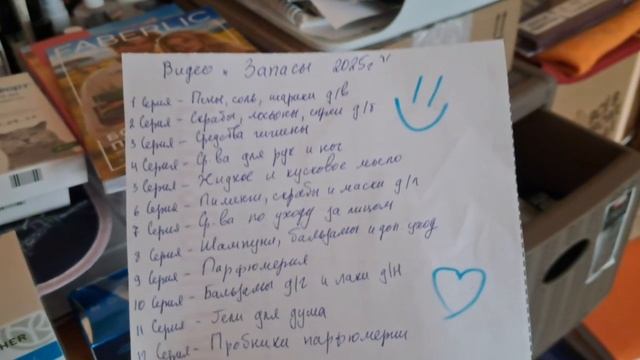 FABERLIC
Видео „Запасы 2025г"
1 Серия - Пены, соль, шарики д/в
2 Серия - Скрабы, лосьоны, спреи д/т
3 Серия - Средства гигиены
4 Серия - Ср.ва для рук и ног
5 Серия - Жидкое и кусковое мыло
6 Серия - Пилинги, скрабы и маски д/л
7 Серия - Ср.ва по уходу за лицом
8 Серия - Шампуни, бальзамы и доп. уход
9 Серия - Парфюмерия
10 Серия - Бальзамы д/г и лаки д/н
11 Серия - Гели для душа
12 Серия - Пробники парфюмерии
HER